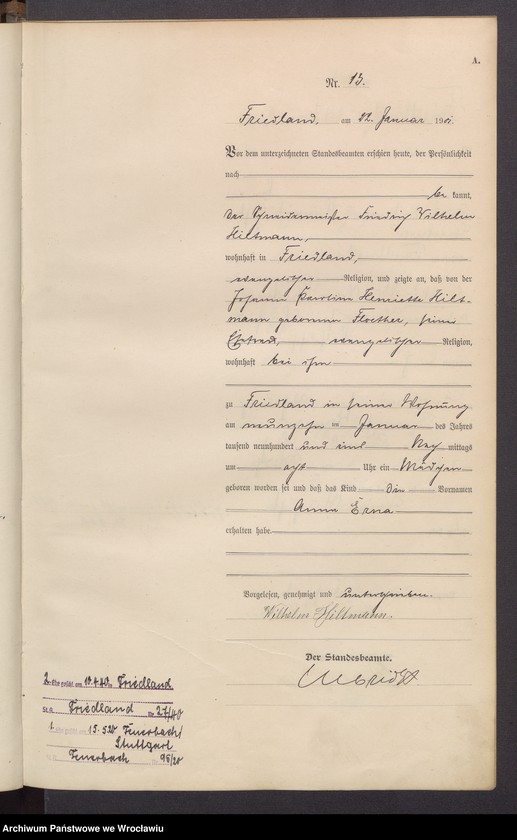 A.
Nr. 13.
Friedland, am 22. Januar 1901.
Vor dem unterzeichneten Standesbeamten erschien heute, der Persönlichkeit
nach
be kannt,
der Schneidermeister Friedrich Wilhelm
Hiltmann,
wohnhaft in Friedland,
evangelischer Religion, und zeigte an, daß von der
Johanna Karoline Henriette Hilt-
mann geborenen Floether, seiner
Ehefrau, evangelischer Religion,
wohnhaft bei ihm
zu Friedland in seiner Wohnung
am neunzehn ten Januar des Jahres
tausend neunhundert und eins Nach mittags
um acht Uhr ein Mädchen
geboren worden sei und daß das Kind die Vornamen
Anna Erna
erhalten habe.
Vorgelesen, genehmigt und unterschrieben.
Wilhelm Hiltmann.
Der Standesbeamte.
2. Ehe geschl. am 19.4.40 in Friedland
St.A. Friedland Nr. 27/40
1. Ehe geschl. am 15.5.20 Feuerbach/
Stuttgart
Feuerbach 95/20
Archiwum Państwowe we Wrocławiu